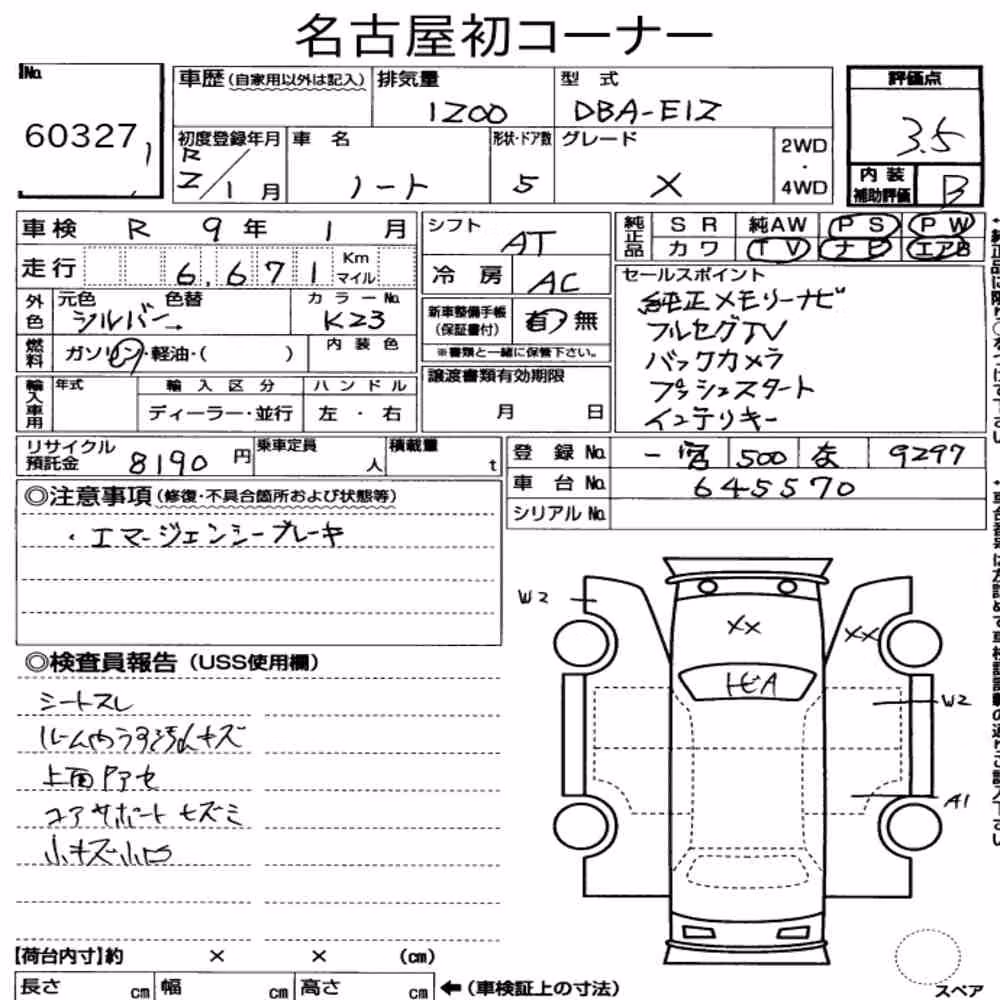 名古屋初コーナー
No.
60327
車歴 (自家用以外は記入)
排気量
1200
型 式
DBA-E12
評価点
3.5
初度登録年月
R
2/1月
車 名
ノート
形状・ドア数
5
グレード
X
2WD
・
4WD
内装
補助評価
B
車検 R 9年 1月
シフト
AT
純正品
SR 純AW PS PW
カワ TV ナビ エアB
走行 6,671 Km
マイル
冷房 AC
セールスポイント
純正メモリーナビ
フルセグTV
バックカメラ
プッシュスタート
インテリキー
外色
元色 色替 カラーNo.
シルバー→ K23
新車整備手帳
(保証書付)
有 無
※書類と一緒に保管下さい。
燃料 ガソリン・軽油・( ) 内装色
輸入車用
年式
輸入区分 ハンドル
ディーラー・並行 左・右
譲渡書類有効期限
月 日
リサイクル
預託金
8190円
乗車定員
人
積載量
t
登録No. 一宮 500 9297
車台No. 645570
シリアルNo.
◎注意事項(修復・不具合箇所および状態等)
・エマージェンシーブレーキ
◎検査員報告(USS使用欄)
シートスレ
ルーム内うす汚れキズ
上面アセ
コアサポートヒズミ
小キズ小凹
W2
XX
XX
トビA
W2
A1
【荷台内寸】約 × × (cm)
長さ cm 幅 cm 高さ cm
←(車検証上の寸法)
スペア